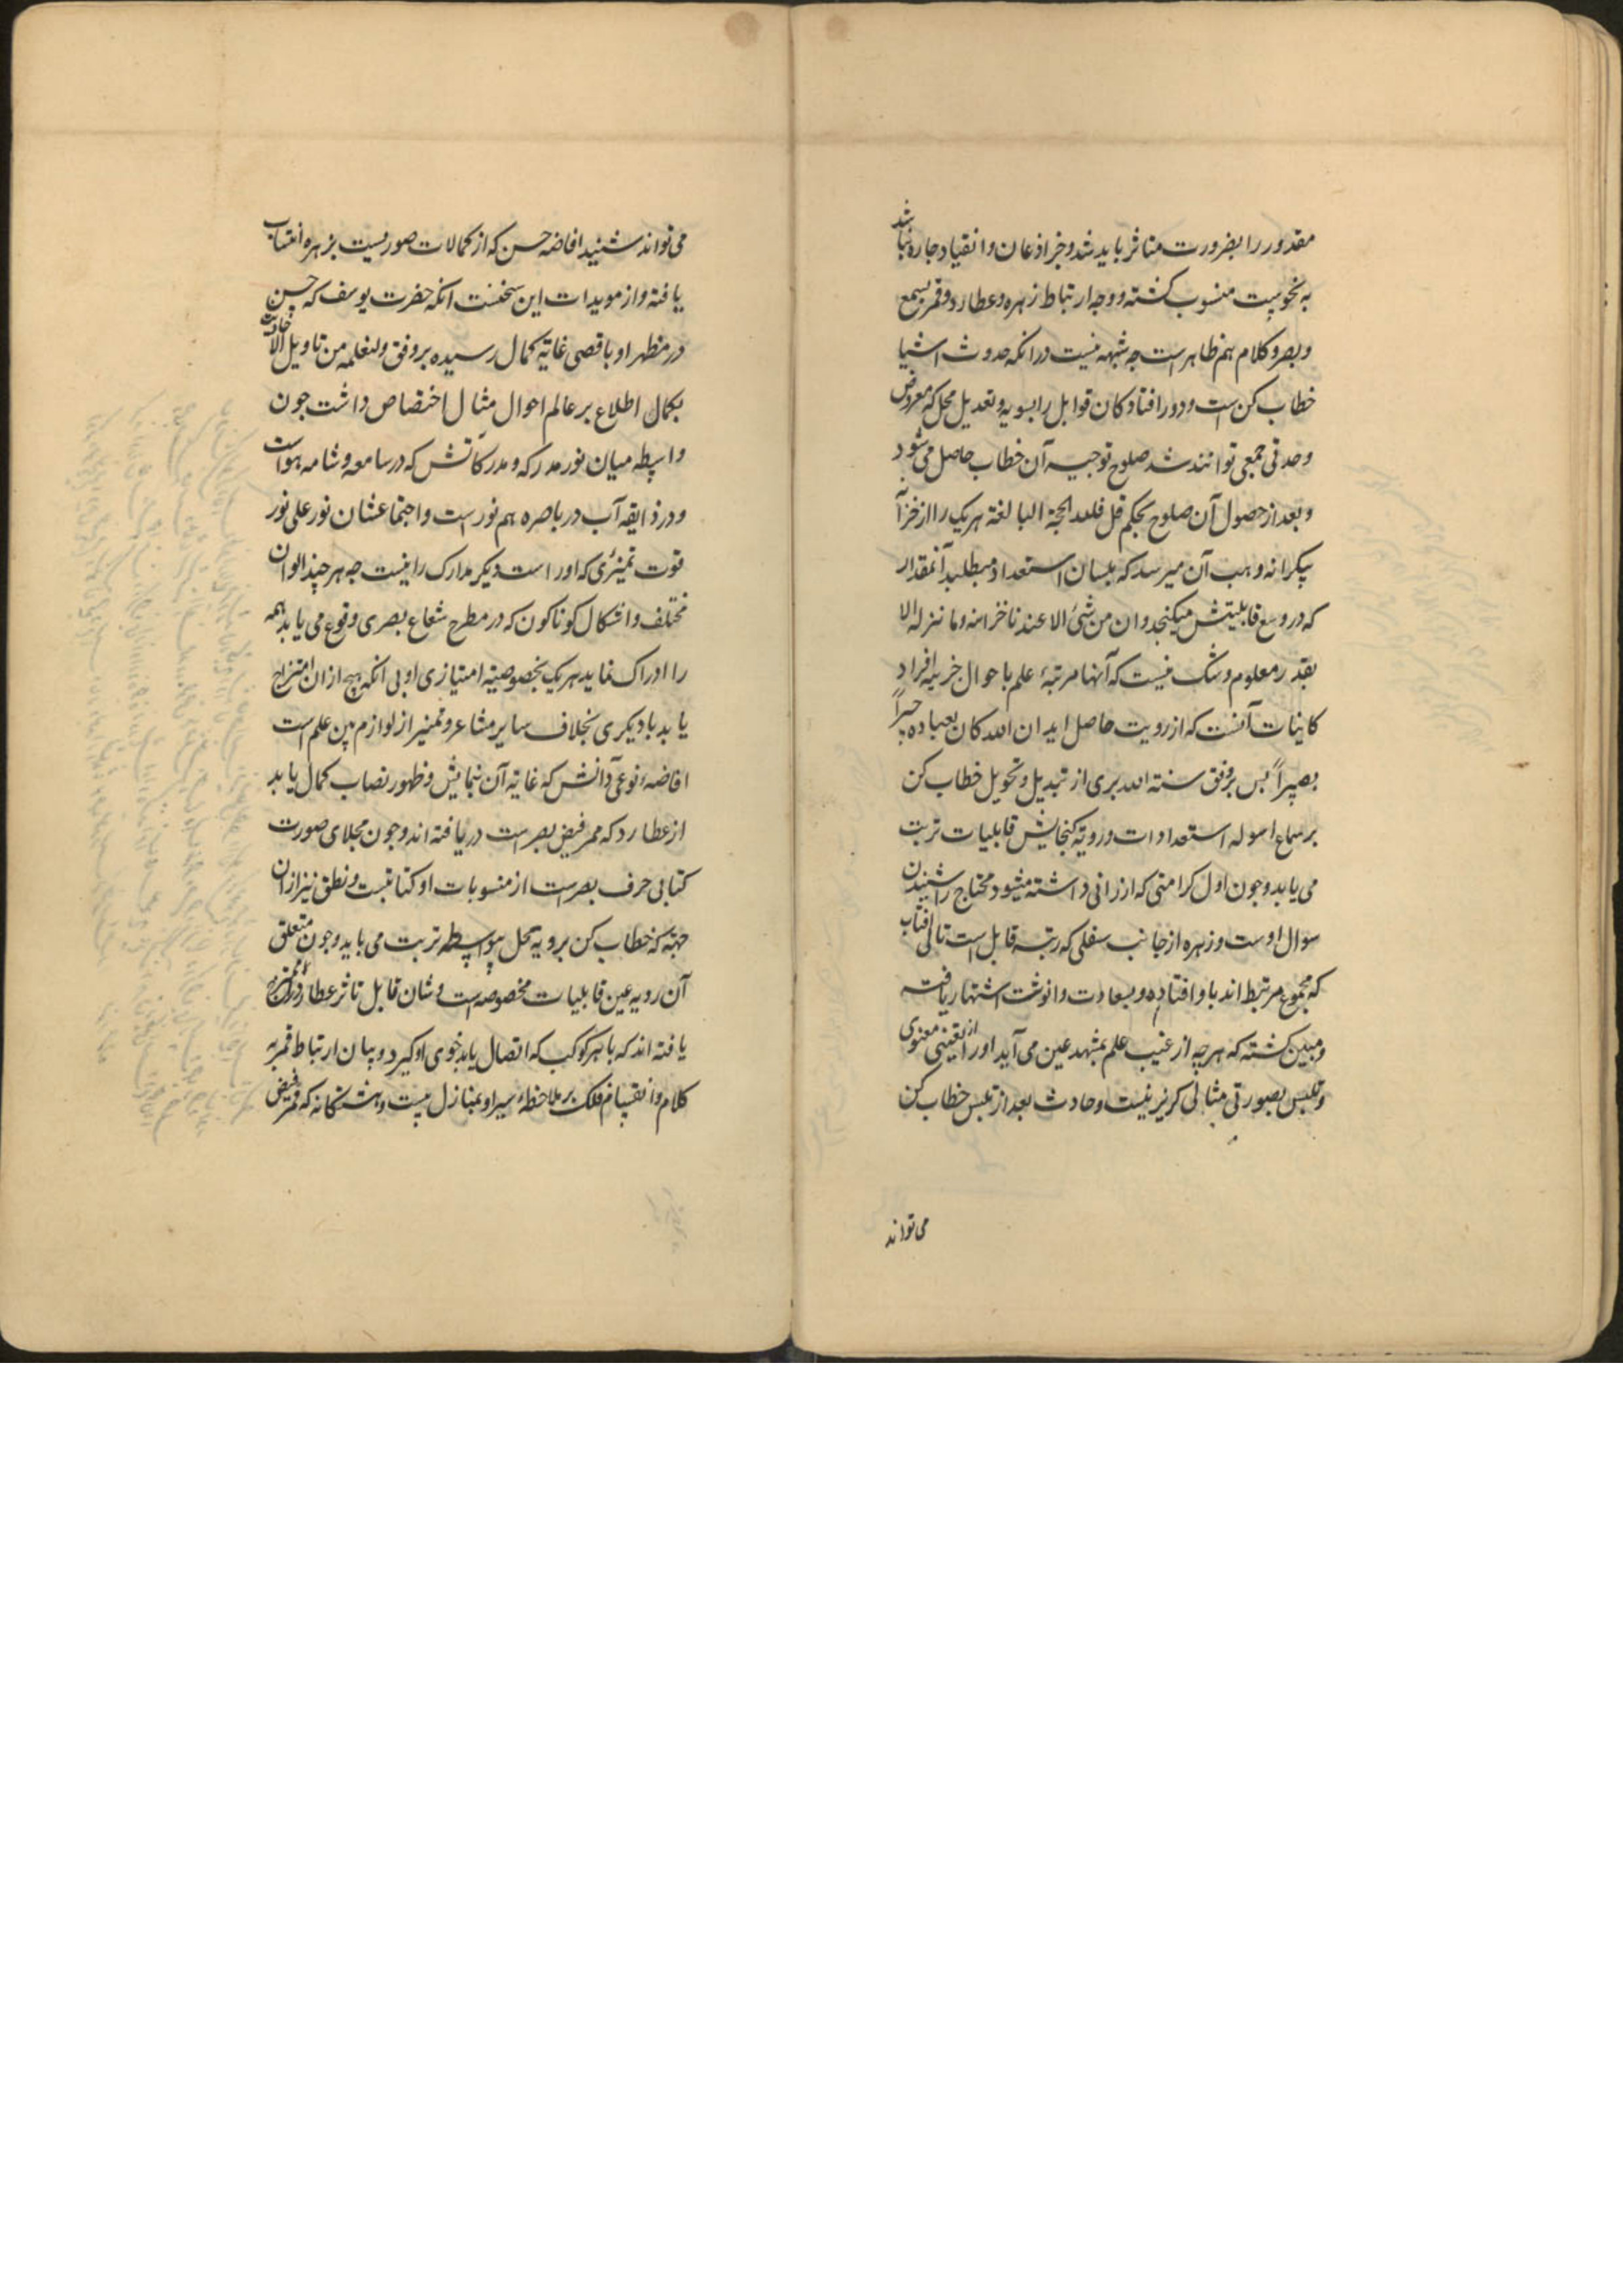 مقدور را بضرورت متاثر باید شد و جز اذعان و انقیاد چاره نباشد
به نحوست منسوب کشته و وجه ارتباط زهره و عطارد و قمر بسمع
و بصر و کلام هم ظاهر است چه شبهه نیست در انکه حدوث اشیا
خطاب کن است و دور افتادکان قوابل را بسویه و تعدیل محل که معروض
وحدتی جمعی توانند شد صلوح توجیه آن خطاب حاصل می شود
و بعد از حصول آن صلوح بحکم قل فلله الحجة البالغة هریک را از خزآ
بیکرانه وهب آن میرسد که بلسان استعداد میطلبد آنمقدار
که در وسع قابلیتش میکنجد و ان من شیٔ الا عندنا خزائنه وما ننزله الا
بقدر معلوم و شک نیست که آنها مرتبهٔ علم باحوال جزییه افراد
کاینات آنست که از رویت حاصل اید ان الله کان بعباده خبیراً
بصیراً پس بر وفق سنة الله بری از تبدیل و تحویل خطاب کن
بر سماع اسوله استعدادات و رویة کنجایش قابلیات ترتب
می یابد و چون اول کرامتی که ارزانی داشته میشود محتاج را شنیدن
سوال اوست و زهره از جانب سفلی که رتبه قابل است تالی افتاب
که مجموع مرتبط اند باو افتاده و بسعادت و انوثت اشتهار یافته
و مبین کشته که هرچه از غیب علم بمشهد عین می آید او را از تعینی معنوی
و تلبس بصورتی مثالی کریز نیست و حادث بعد از تلبس خطاب کن
می تواند
می تواند شنید افاضه حسن که از کمالات صوریست بزهره انتساب
یافته و از مویدات این سخنست انکه حضرت یوسف که حسن
در مظهر او باقصی غایة کمال رسیده بر وفق ولنعلمه من تاویل الاحادیث
بکمال اطلاع بر عالم احوال مثال اختصاص داشت چون
واسطه میان نور مدرکه و مدرکاتش که در سامعه و شامه هواست
و در ذایقه آب در باصره هم نورست و اجتماعشان نور علی نور
قوت تمیزی که او راست دیکر مدارک را نیست چه هر چند الوان
مختلف و اشکال کوناکون که در مطرح شعاع بصری وقوع می یابد همه
را ادراک نماید هریک بخصوصیة امتیازی او بی انکه هیچ از ان امتزاج
یابد بادیکری بخلاف سایر مشاعر و تمییز از لوازم بین علم است
افاضهٔ نوعی دانش که غایة آن نمایش و ظهور نصاب کمال یابد
از عطارد که ممر فیض بصر است دریافته اند و چون مجلای صورت
کتابی حرف بصرست از منسوبات او کتابتست و نطق نیز از ان
جهته که خطاب کن بر رویة محل بواسطه ترتب می یابد و چون متعلق
آن رویه عین قابلیات مخصوصه است و شان قابل تاثر عطارد را ممتزج
یافته اند که با هر کوکب که اتصال یابد خوی او کیرد و بیان ارتباط قمر به
کلام و انقسام فلک بر ملاحظهٔ سیر او بمنازل بیست و هشتکانه که قمر فیض